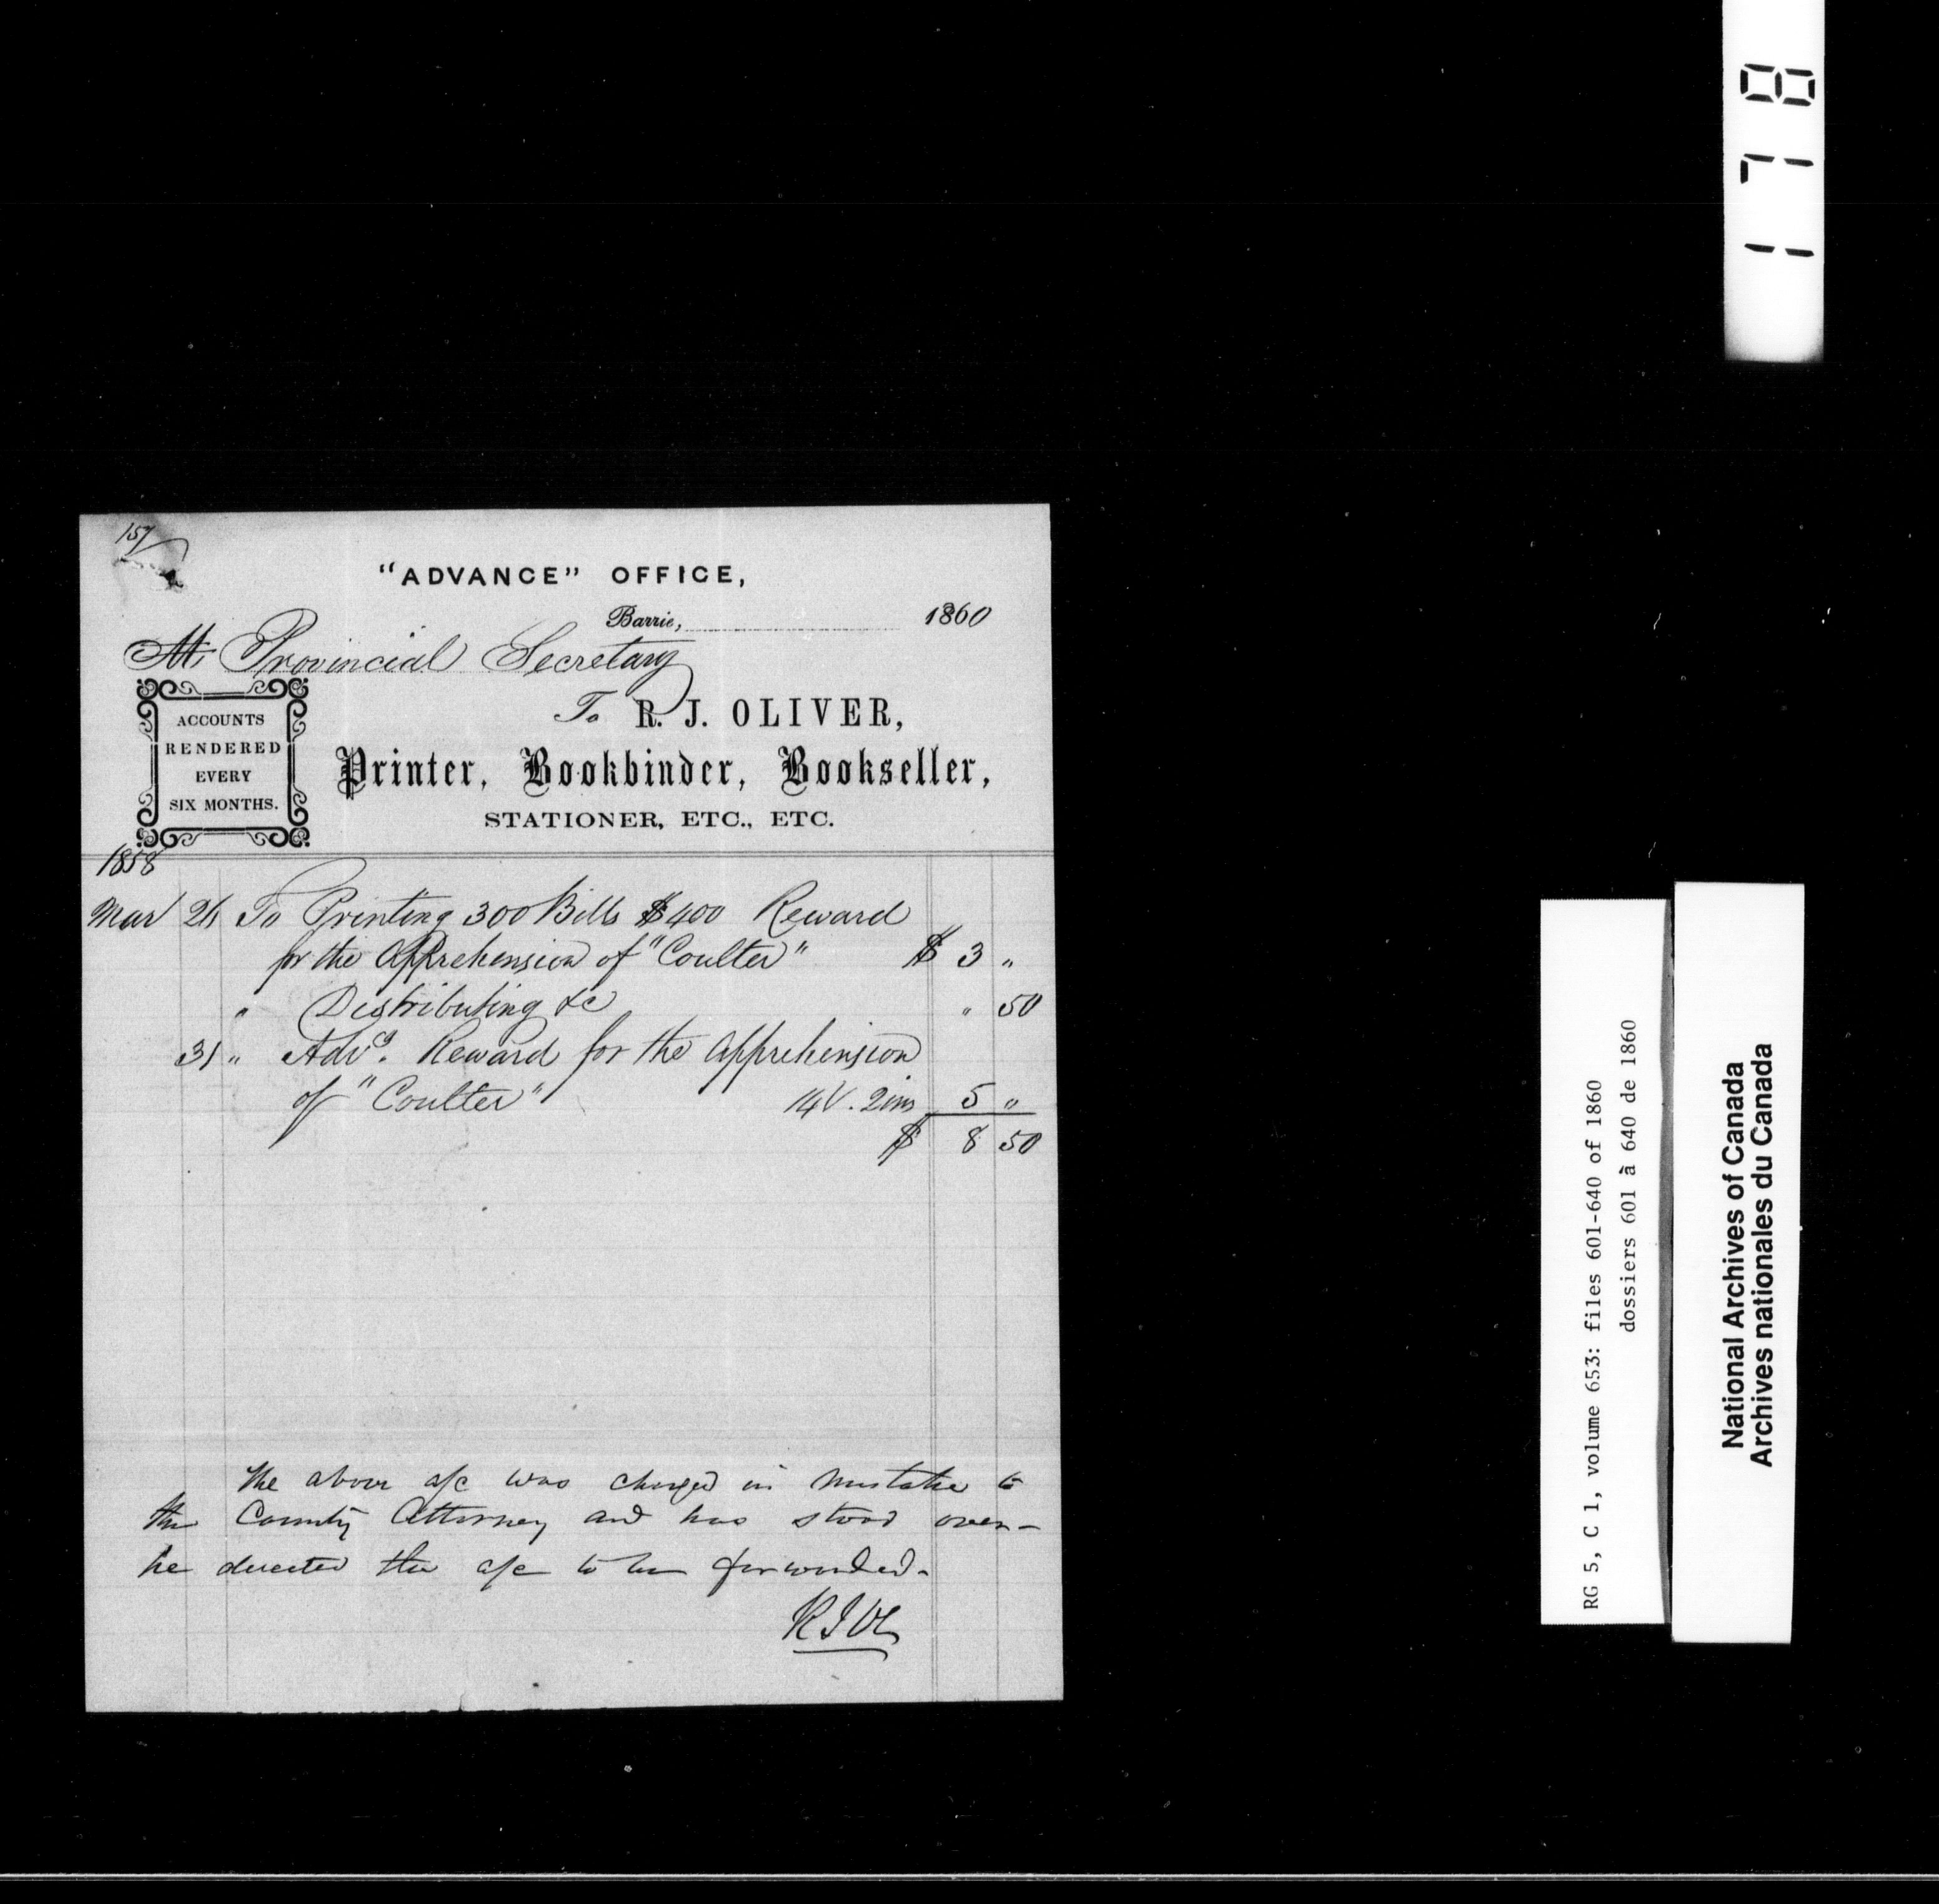 178
157
"ADVANCE" OFFICE,
Barrie, 1860
M Provincial Secretary
To R. J. OLIVER,
ACCOUNTS
RENDERED
EVERY
SIX MONTHS.
Printer, Bookbinder, Bookseller,
STATIONER, ETC., ETC.
1858
Mar 26 To Printing 300 Bills $400 Reward
for the Apprehension of "Coulter" $ 3 "
" Distributing &c " 50
31 " Advg. Reward for the Apprehension
of "Coulter" 14V. 2ins 5 "
$ 8 50
The above a/c was charged in mistake to
the County Attorney and has stood over-
he directed the a/c to be forwarded.
RJO
RG 5, C 1, volume 653: files 601-640 of 1860
dossiers 601 à 640 de 1860
National Archives of Canada
Archives nationales du Canada